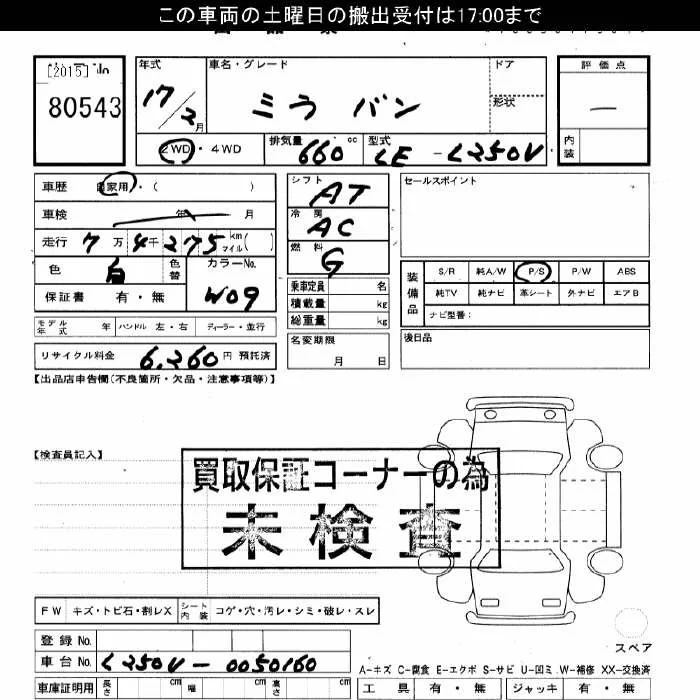 この車両の土曜日の搬出受付は17:00まで
[2015] No
80543
年式
17/2月
車名・グレード
ミラ バン
ドア
形状
評価点
内装
2WD・4WD
排気量 660 cc
型式 LE-L250V
車歴 自家用・( )
車検 年 月
走行 7万4千275 km マイル( )
色 白 色替
カラーNo. W09
保証書 有・無
シフト AT
冷房 AC
燃料 G
乗車定員 名
積載量 kg
総重量 kg
名変期限
月 日
セールスポイント
装備品
S/R 純A/W P/S P/W ABS
純TV 純ナビ 革シート 外ナビ エアB
ナビ型番:
後日品
モデル年式 年 ハンドル 左・右 ディーラー・並行
リサイクル料金 6,260 円 預託済
【出品店申告欄(不良箇所・欠品・注意事項等)】
【検査員記入】
買取保証コーナーの為
未検査
FW キズ・トビ石・割レX シート内装 コゲ・穴・汚レ・シミ・破レ・スレ
登録No.
車台No. L250V-0050160
スペア
A-キズ C-腐食 E-エクボ S-サビ U-凹ミ W-補修 XX-交換済
車庫証明用 長さ cm 幅 cm 高さ cm
工具 有・無 ジャッキ 有・無